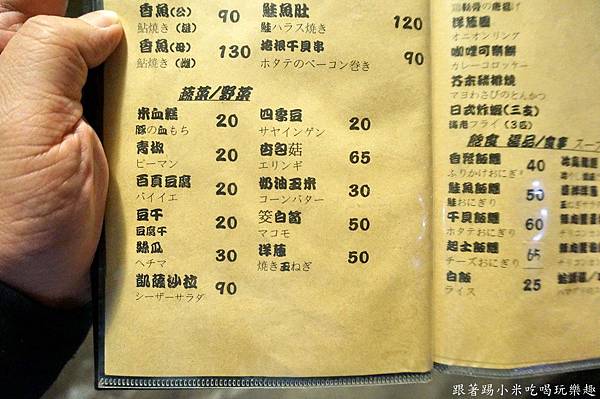 香魚(公) 90
鮎焼き(雄)
香魚(母) 130
鮎焼き(雌)
鮭魚肚 120
鮭ハラス焼き
培根干貝串 90
ホタテのベーコン巻き
蔬菜/野菜
米血糕 20
豚の血もち
青椒 20
ピーマン
百頁豆腐 20
パイイエ
豆干 20
豆腐干
絲瓜 30
ヘチマ
凱薩沙拉 90
シーザーサラダ
四季豆 20
サヤインゲン
杏包菇 65
エリンギ
奶油玉米 30
コーンバター
筊白筍 50
マコモ
洋蔥 50
焼き玉ねぎ
洋蔥圈
オニオンリング
咖哩可樂餅
カレーコロッケー
芥末豬排燒
マヨわさびのとんかつ
日式炸蝦(三支)
海老フライ(3匹)
飯食 湯品/食事 スープ
自飛飯糰 40
ふりかけおにぎり
鮭魚飯糰 50
鮭おにぎり
干貝飯糰 60
ホタテおにぎり
起士飯糰 65
チーズおにぎり
白飯 25
ライス
跟著踢小米吃喝玩樂趣